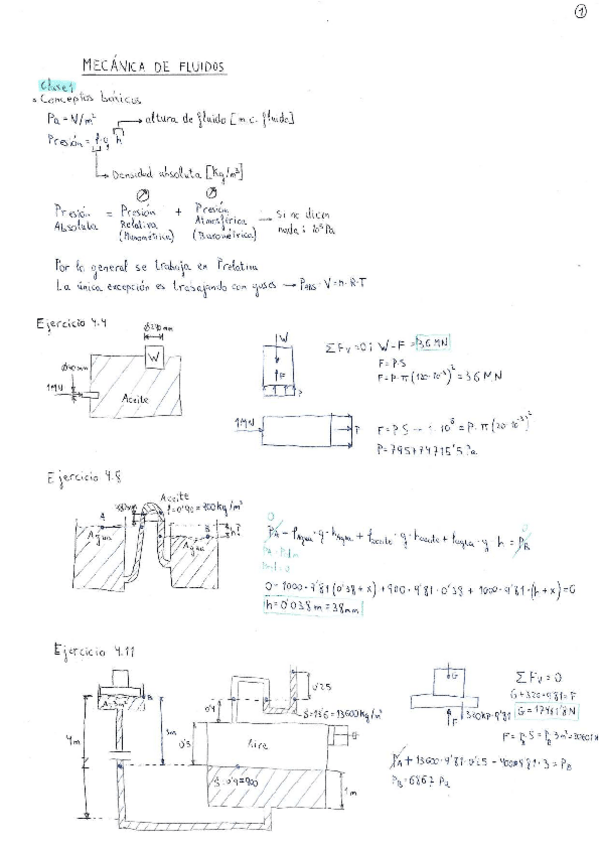 1
MECÁNICA DE FLUIDOS
Clase 1
Conceptos básicos
Pa = N/m²
altura de fluido [m.c. fluido]
Presión = ρ·g·h
Densidad absoluta [Kg/m³]
Presión Absoluta = Presión Relativa (Manométrica) + Presión Atmosférica (Barométrica) → Si no dicen nada: 10⁵ Pa
Por lo general se trabaja en Prelativa
La única excepción es trabajando con gases → PABS·V = n·R·T
Ejercicio 4.4
W
1MN
Aceite
W
F
P
ΣFv = 0; W-F = 36 MN
F = P·S
F = P·π(120·10⁻³)² = 36 MN
1MN
P
F = P·S → 10⁶ = P·π(20·10⁻³)²
P = 795774715'5 Pa
Ejercicio 4.8
Aceite
ρ = 0'90 = 900 kg/m³
A
B
h?
Agua
Agua
0
0
PA - ρAgua·g·hAgua + ρaceite·g·haceite + ρAgua·g·h = PB
0 - 1000·9'81(0'38 + x) + 900·9'81·0'38 + 1000·9'81·(h + x) = 0
h = 0'038m = 38mm
Ejercicio 4.11
A=3m²
B
4m
5m
0'4
0'5
0'25
S=13'6=13600kg/m³
Aire
S=0'9=900
1m
G
F
320kp·9'81
ΣFv = 0
G+320·9.81 = F
G = 17461'8N
PB = 6867 Pa